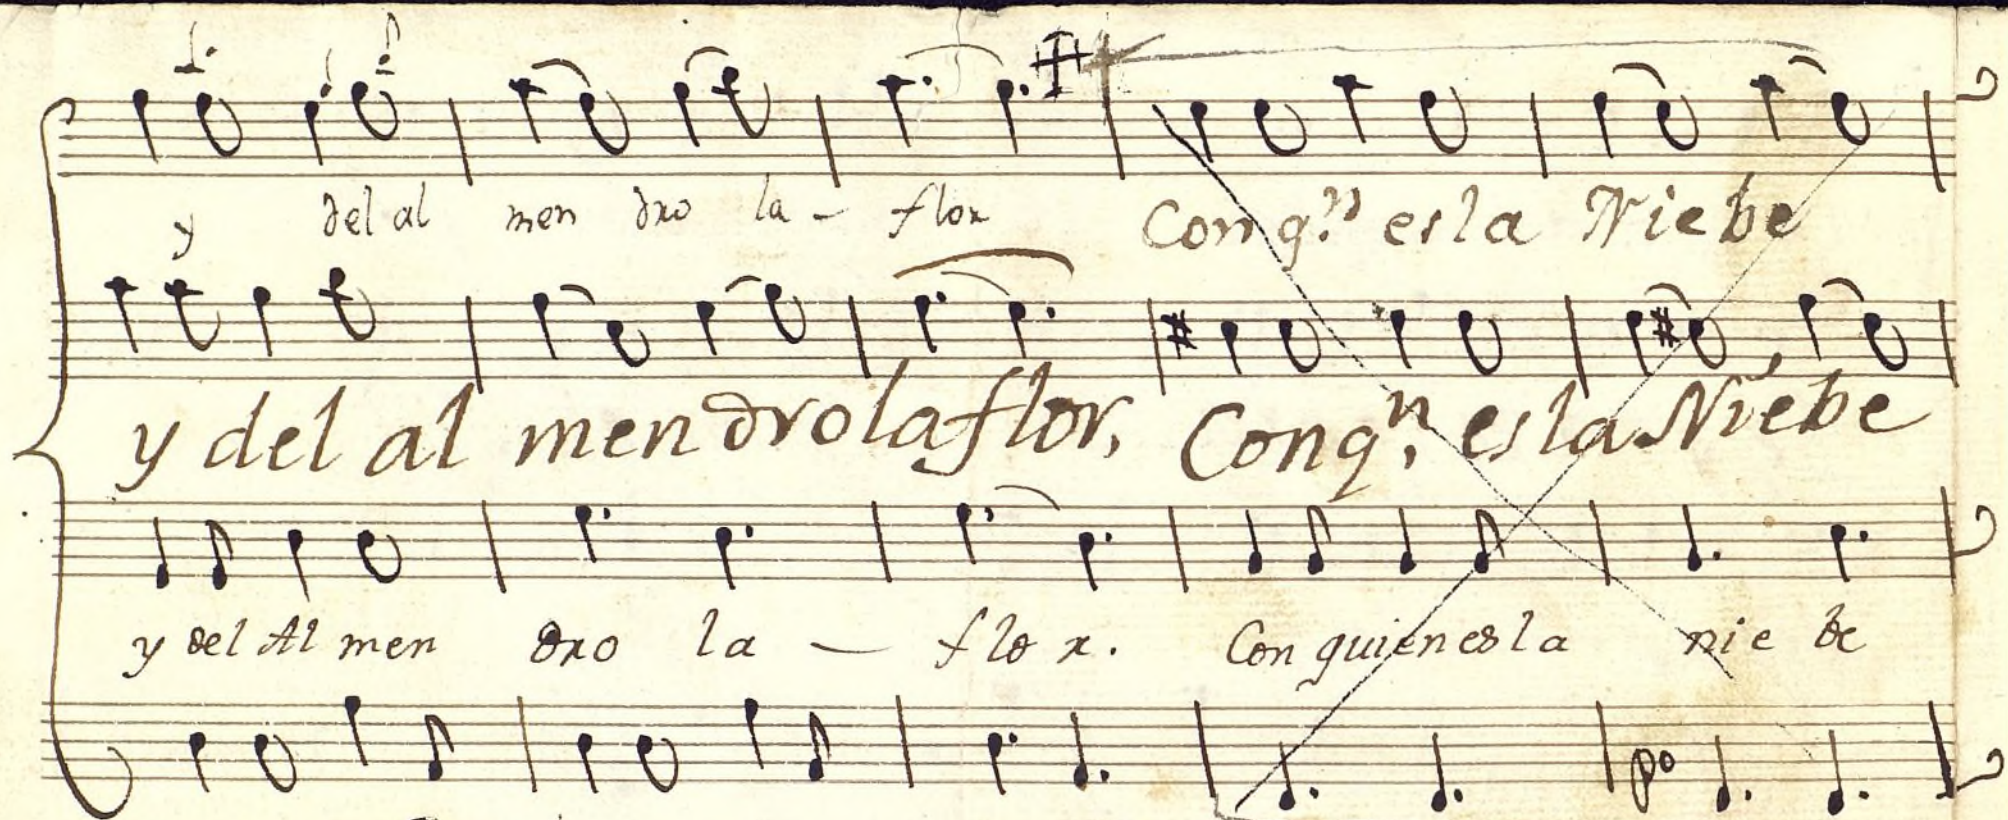 y del al men dro la - flor Con q.n es la Niebe
y del al men dro la flor, Con q.n es la Niebe
y del Al men dro la — flor. Con quien es la nie be
po